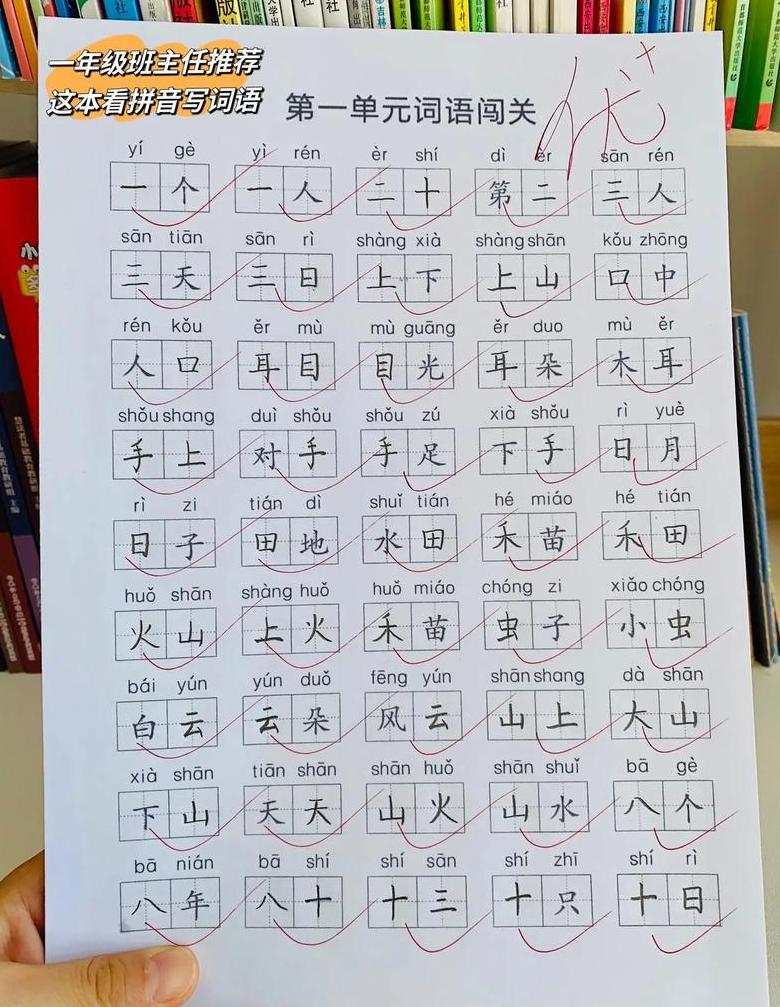 一年级班主任推荐
这本看拼音写词语
第一单元词语闯关
优+
yí gè yì rén èr shí dì èr sān rén
一个 一人 二十 第二 三人
sān tiān sān rì shàng xià shàng shān kǒu zhōng
三天 三日 上下 上山 口中
rén kǒu ěr mù mù guāng ěr duo mù ěr
人口 耳目 目光 耳朵 木耳
shǒu shang duì shǒu shǒu zú xià shǒu rì yuè
手上 对手 手足 下手 日月
rì zi tián dì shuǐ tián hé miáo hé tián
日子 田地 水田 禾苗 禾田
huǒ shān shàng huǒ huǒ miáo chóng zi xiǎo chóng
火山 上火 禾苗 虫子 小虫
bái yún yún duǒ fēng yún shān shang dà shān
白云 云朵 风云 山上 大山
xià shān tiān shān shān huǒ shān shuǐ bā gè
下山 天天 山火 山水 八个
bā nián bā shí shí sān shí zhī shí rì
八年 八十 十三 十只 十日